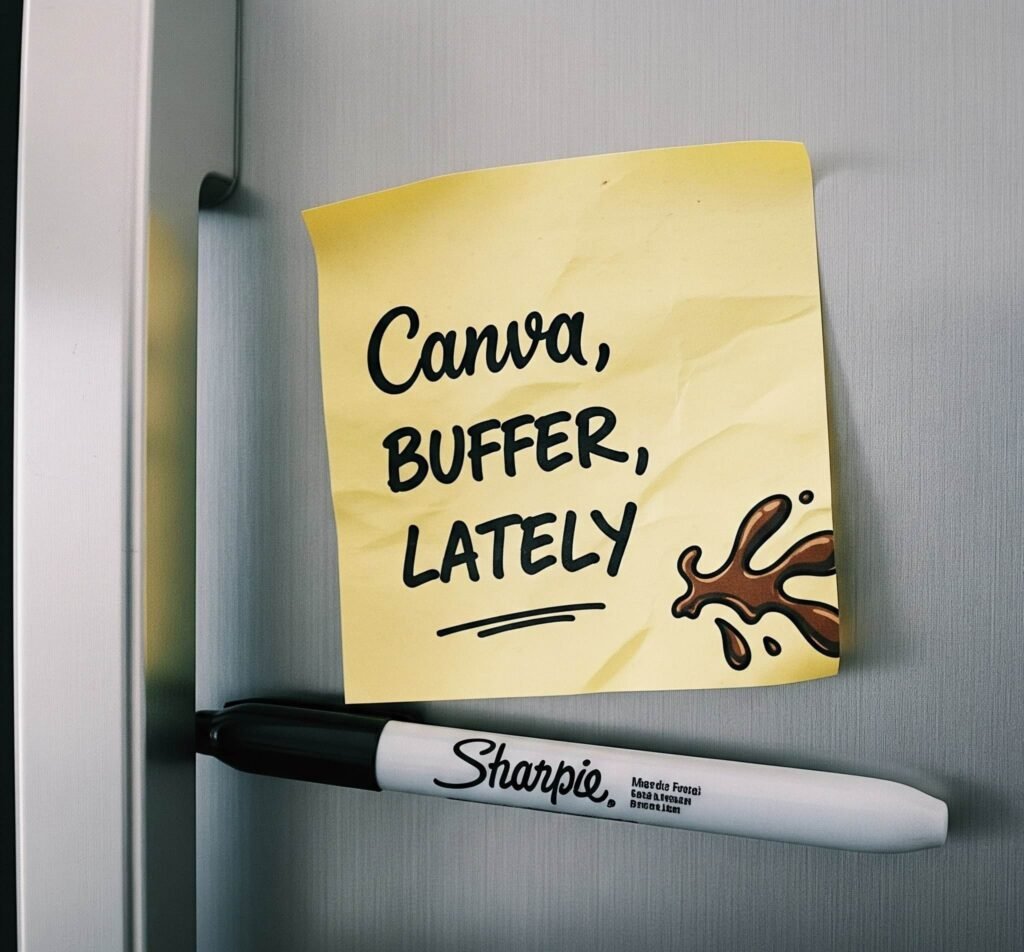 Canva,
BUFFER,
LATELY
Sharpie.